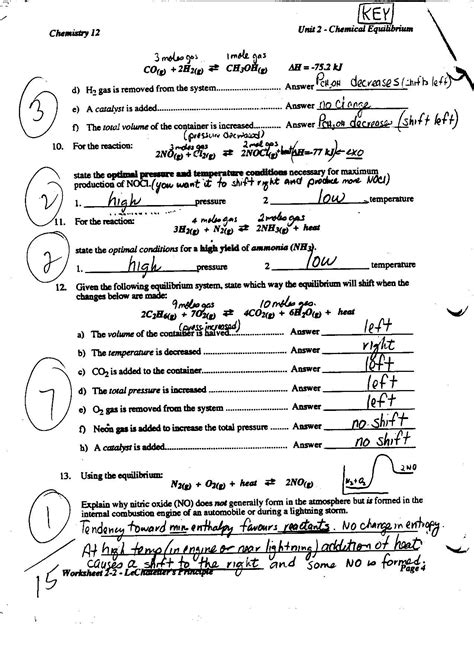 KEY
Chemistry 12 Unit 2 - Chemical Equilibrium
3 moles gas 1 mole gas
CO(g) + 2H2(g) ⇄ CH3OH(g) ΔH = -75.2 kJ
d) H2 gas is removed from the system.................... Answer PCH3OH decreases (shifts left)
e) A catalyst is added.................... Answer no change
3
f) The total volume of the container is increased.......... Answer PCH3OH decrease (shift left)
(pressure decreased)
10. For the reaction: 3 moles gas 2 mol gas
2NO(g) + Cl2(g) ⇄ 2NOCl(g) + heat ΔH= -77 kJ exo
state the optimal pressure and temperature conditions necessary for maximum
production of NOCl. (you want it to shift right and produce more NOCl)
2
1. high pressure 2 low temperature
11. For the reaction: 4 moles gas 2 moles gas
3H2(g) + N2(g) ⇄ 2NH3(g) + heat
state the optimal conditions for a high yield of ammonia (NH3).
2
1. high pressure 2 low temperature
12. Given the following equilibrium system, state which way the equilibrium will shift when the
changes below are made:
9 moles gas 10 moles gas
2C2H6(g) + 7O2(g) ⇄ 4CO2(g) + 6H2O(g) + heat
(press increased)
a) The volume of the container is halved.................... Answer left
b) The temperature is decreased .................... Answer right
c) CO2 is added to the container.................... Answer left
7
d) The total pressure is increased .................... Answer left
e) O2 gas is removed from the system .................... Answer left
f) Neon gas is added to increase the total pressure ....... Answer no shift
h) A catalyst is added.................... Answer no shift
13. Using the equilibrium:
N2(g) + O2(g) + heat ⇄ 2NO(g)
N2+O2 2NO
Explain why nitric oxide (NO) does not generally form in the atmosphere but is formed in the
internal combustion engine of an automobile or during a lightning storm.
1
Tendency toward min enthalpy favours reactants. No change in entropy.
At high temp (in engine or near lightning) addition of heat
causes a shift to the right and some NO is formed.
15
Worksheet 2-2 - LeChatelier's Principle Page 4